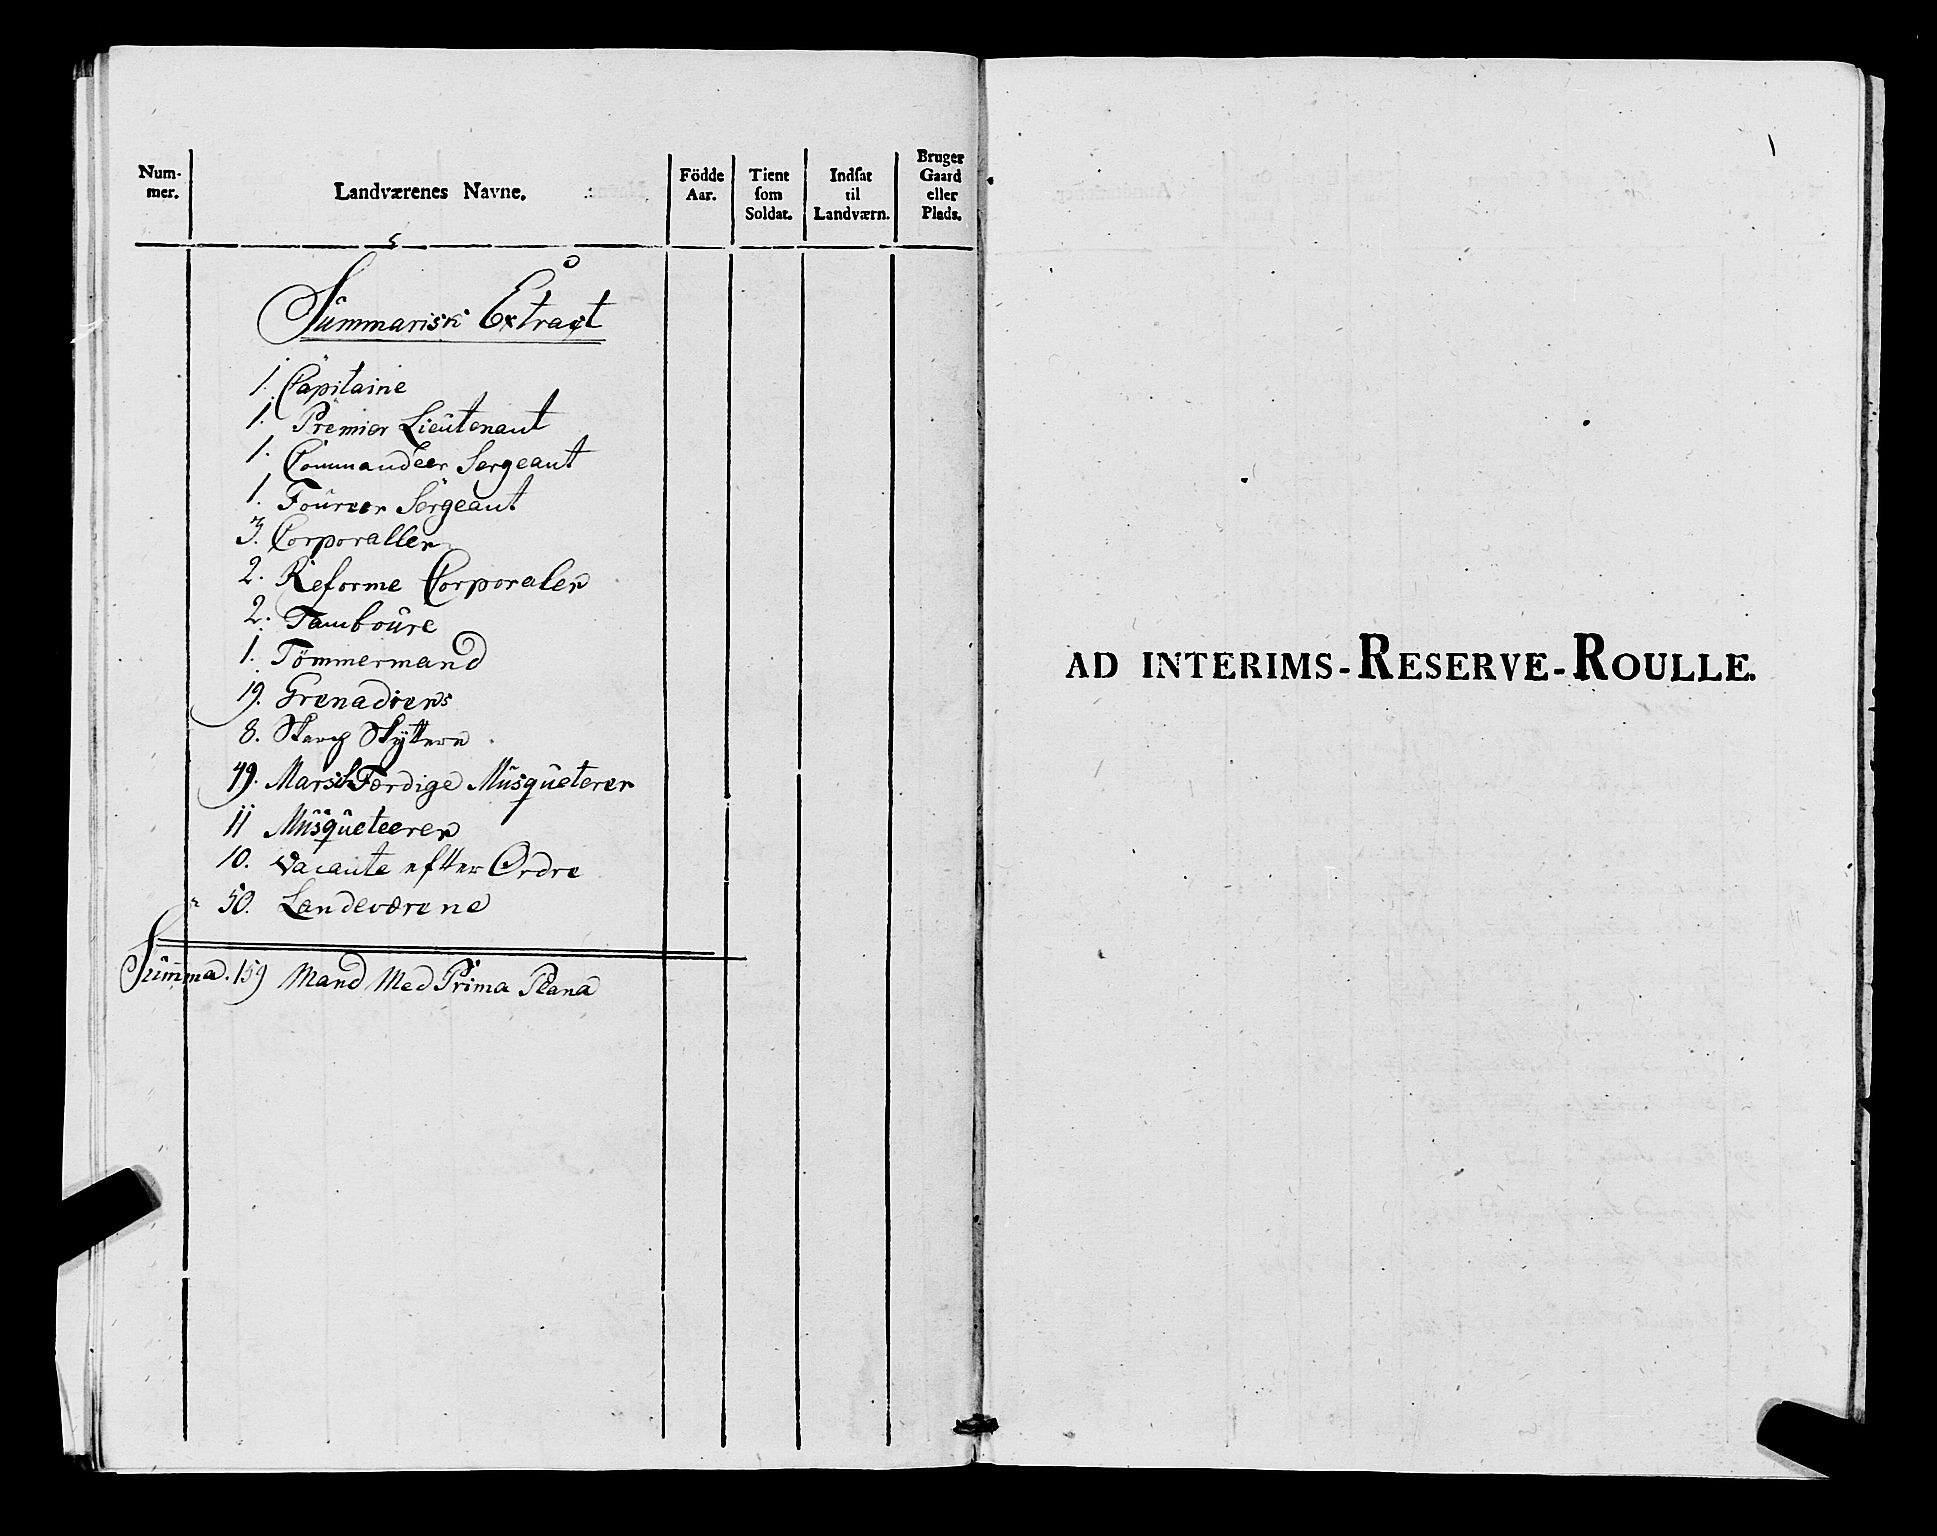 Num-
mer.
Landværenes Navne.
Födde
Aar.
Tient
som
Soldat.
Indsat
til
Landværn.
Bruger
Gaard
eller
Plads.
Summarisk Extract
1. Capitaine
1. Premier Lieutenant
1. Commandeer Sergeant
1. Foureer Sergeant
3. Corporaller
2. Reforme Corporaler
2. Tamboure
1. Tömmermand
19. Grenadiers
8. Skarp Skyttere
49. Marsch Færdige Musqueterer
11 Musqueteerer
10. Vacante efter Ordre
50. Landeværene
Summa. 159 Mand Med Prima Plana
AD INTERIMS-RESERVE-ROULLE.